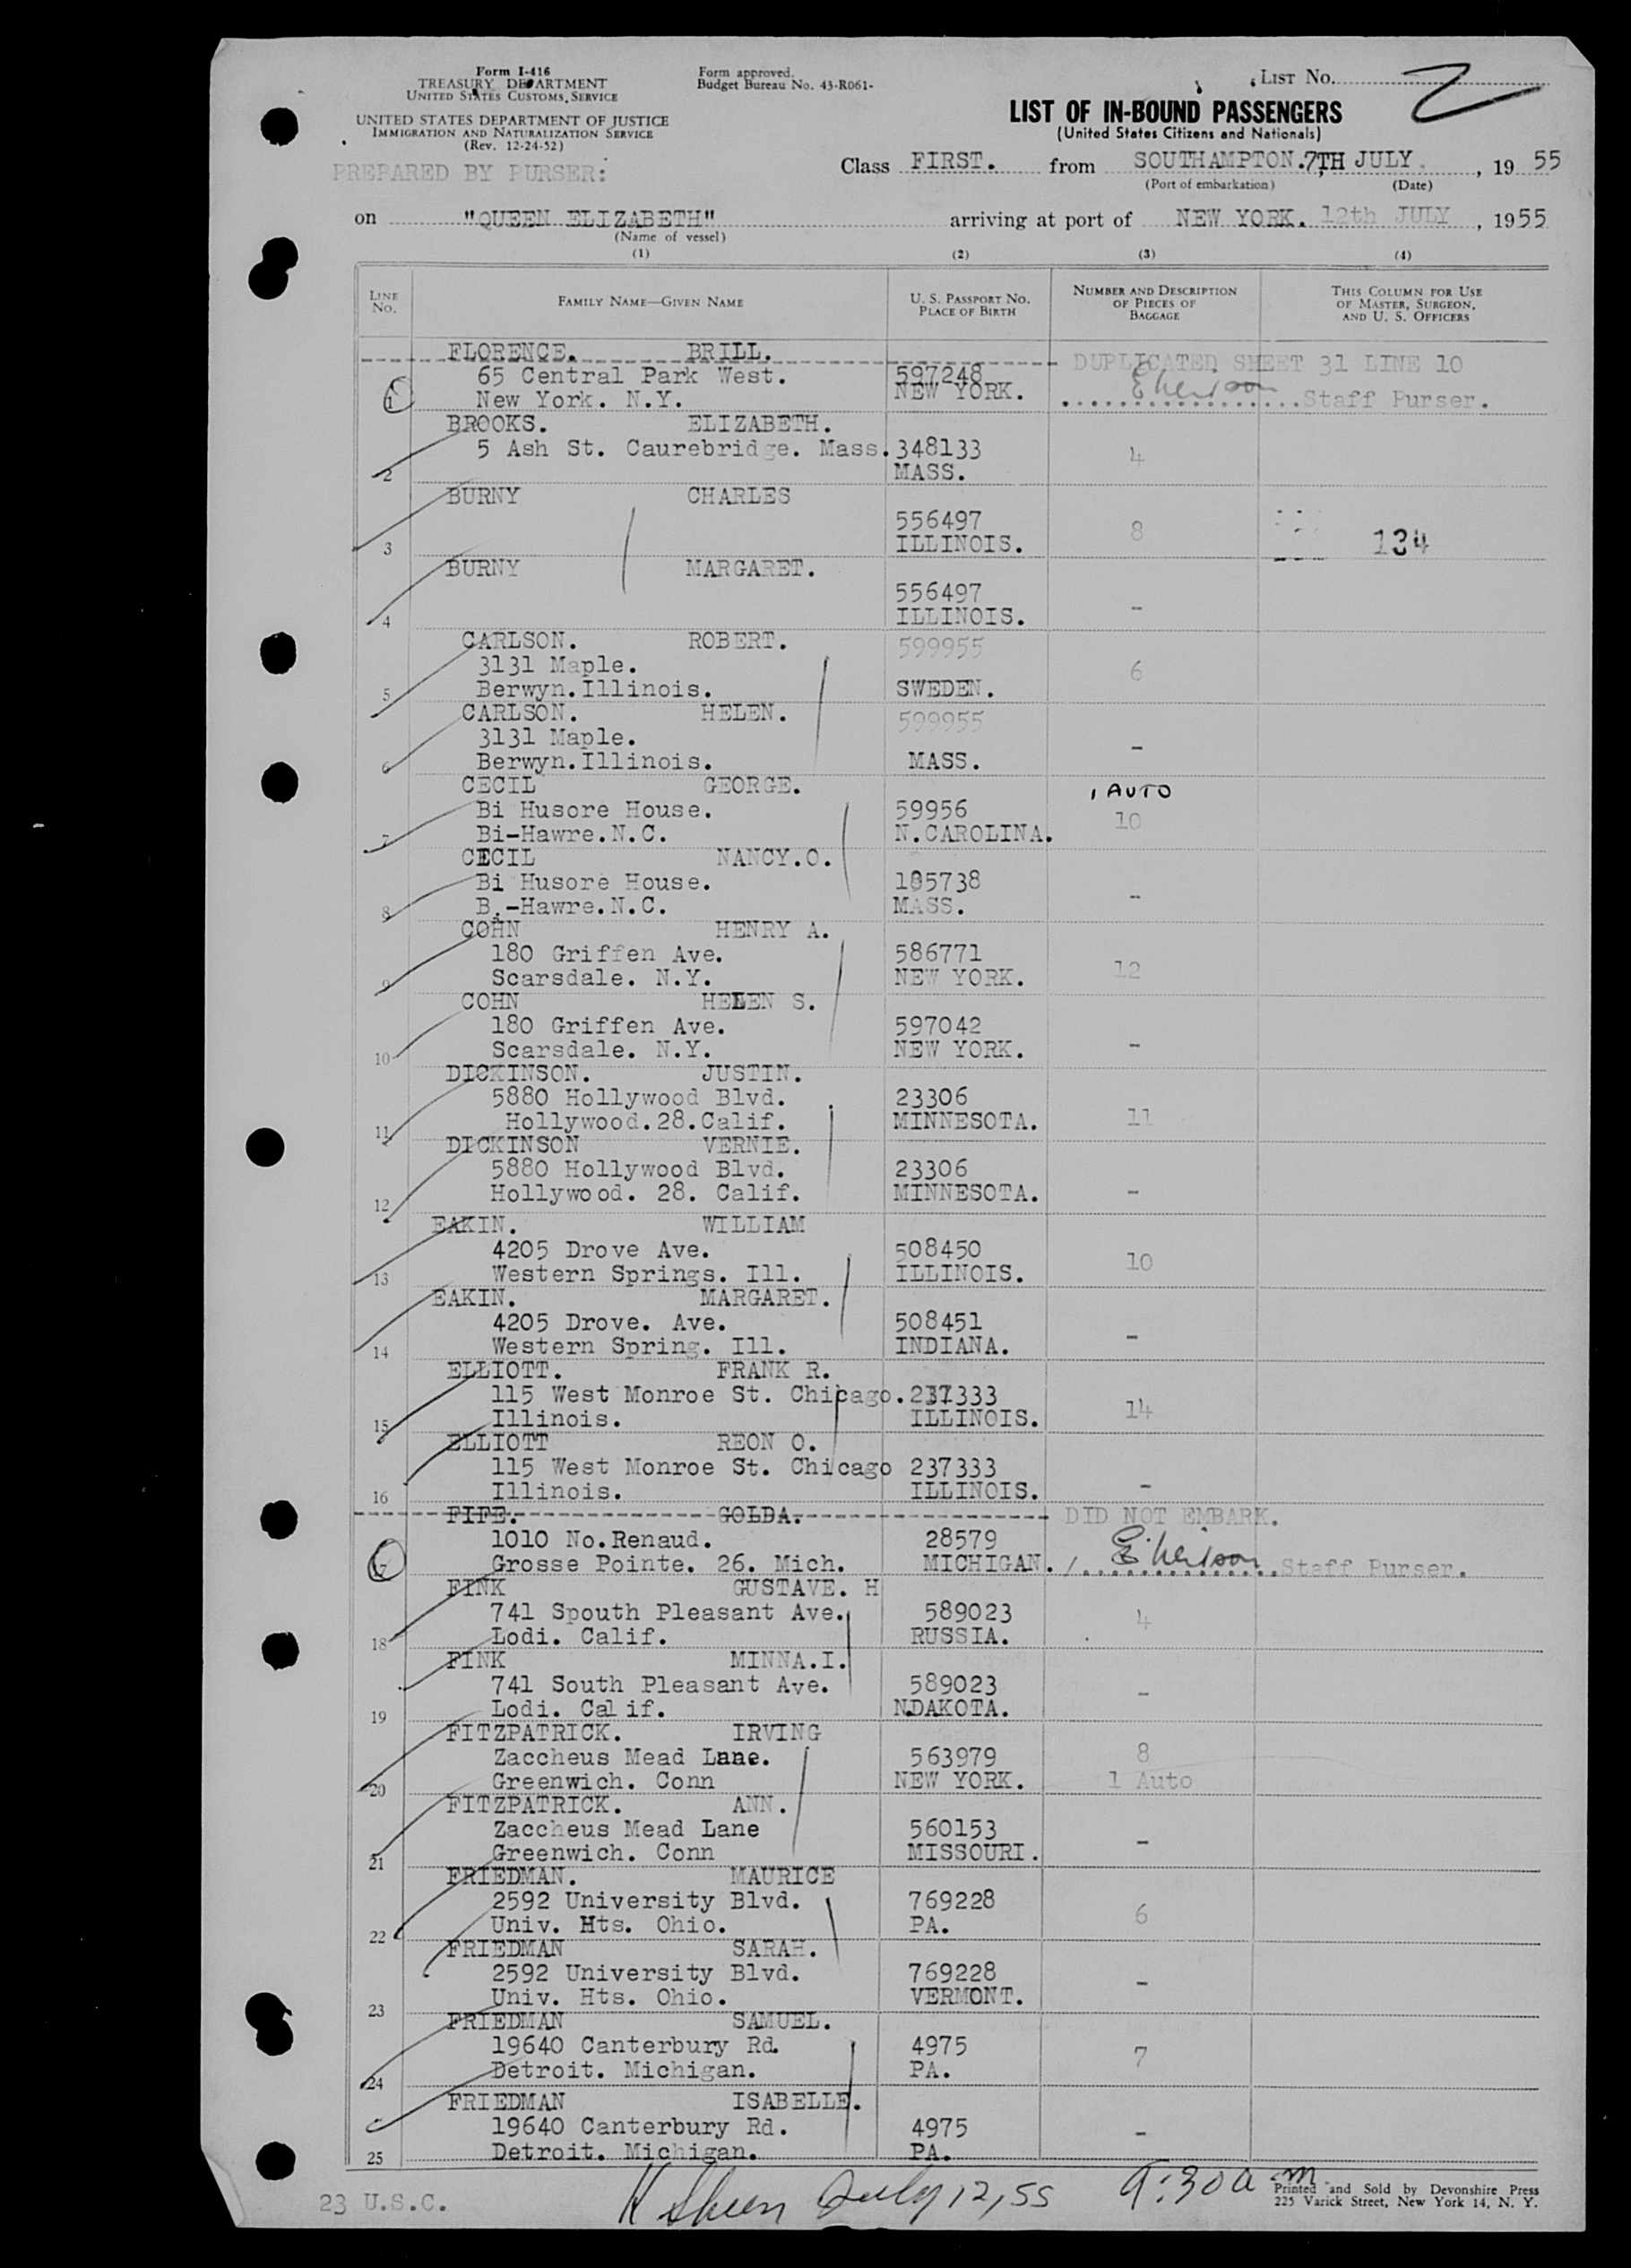 Form I-416
TREASURY DEPARTMENT
UNITED STATES CUSTOMS SERVICE
UNITED STATES DEPARTMENT OF JUSTICE
IMMIGRATION AND NATURALIZATION SERVICE
(Rev. 12-24-52)
PREPARED BY PURSER:
Form approved.
Budget Bureau No. 43-R061-
LIST NO. 2
LIST OF IN-BOUND PASSENGERS
(United States Citizens and Nationals)
Class FIRST. from SOUTHAMPTON. 7TH JULY. , 19 55
(Port of embarkation) (Date)
on "QUEEN ELIZABETH" arriving at port of NEW YORK. 12th JULY , 1955
(Name of vessel)
(1) (2) (3) (4)
LINE NO. FAMILY NAME—GIVEN NAME U. S. PASSPORT NO. PLACE OF BIRTH NUMBER AND DESCRIPTION OF PIECES OF BAGGAGE THIS COLUMN FOR USE OF MASTER, SURGEON, AND U. S. OFFICERS
FLORENCE. BRILL. DUPLICATED SHEET 31 LINE 10
65 Central Park West. 597248
1 New York. N.Y. NEW YORK. Staff Purser.
BROOKS. ELIZABETH.
5 Ash St. Caurebridge. Mass. 348133 4
2 MASS.
BURNY CHARLES
556497 8
3 ILLINOIS. 134
BURNY MARGARET.
556497
4 ILLINOIS. -
CARLSON. ROBERT. 599955
3131 Maple. 6
5 Berwyn. Illinois. SWEDEN.
CARLSON. HELEN. 599955
3131 Maple. -
6 Berwyn. Illinois. MASS.
CECIL GEORGE. 1 AUTO
Bi Husore House. 59956 10
7 Bi-Hawre. N.C. N.CAROLINA.
CECIL NANCY.O.
Bi Husore House. 105738 -
8 B.-Hawre. N.C. MASS.
COHN HENRY A.
180 Griffen Ave. 586771 12
9 Scarsdale. N.Y. NEW YORK.
COHN HELEN S.
180 Griffen Ave. 597042 -
10 Scarsdale. N.Y. NEW YORK.
DICKINSON. JUSTIN.
5880 Hollywood Blvd. 23306 11
11 Hollywood. 28. Calif. MINNESOTA.
DICKINSON VERNIE.
5880 Hollywood Blvd. 23306 -
12 Hollywood. 28. Calif. MINNESOTA.
EAKIN. WILLIAM
4205 Drove Ave. 508450 10
13 Western Springs. Ill. ILLINOIS.
EAKIN. MARGARET.
4205 Drove. Ave. 508451 -
14 Western Spring. Ill. INDIANA.
ELLIOTT. FRANK R.
115 West Monroe St. Chicago. 237333 14
15 Illinois. ILLINOIS.
ELLIOTT REON O.
115 West Monroe St. Chicago 237333 -
16 Illinois. ILLINOIS.
FIFE. GOLDA. DID NOT EMBARK.
1010 No. Renaud. 28579
17 Grosse Pointe. 26. Mich. MICHIGAN. Staff Purser.
FINK GUSTAVE. H
741 Spouth Pleasant Ave. 589023 4
18 Lodi. Calif. RUSSIA.
FINK MINNA.I.
741 South Pleasant Ave. 589023 -
19 Lodi. Calif. N.DAKOTA.
FITZPATRICK. IRVING
Zaccheus Mead Lane. 563979 8
20 Greenwich. Conn NEW YORK. 1 Auto
FITZPATRICK. ANN.
Zaccheus Mead Lane 560153 -
21 Greenwich. Conn MISSOURI.
FRIEDMAN. MAURICE
2592 University Blvd. 769228 6
22 Univ. Hts. Ohio. PA.
FRIEDMAN SARAH.
2592 University Blvd. 769228 -
23 Univ. Hts. Ohio. VERMONT.
FRIEDMAN SAMUEL.
19640 Canterbury Rd. 4975 7
24 Detroit. Michigan. PA.
FRIEDMAN ISABELLE.
19640 Canterbury Rd. 4975 -
25 Detroit. Michigan. PA.
23 U.S.C. July 12, 55 9:30 a.m
Printed and Sold by Devonshire Press
225 Varick Street, New York 14, N. Y.